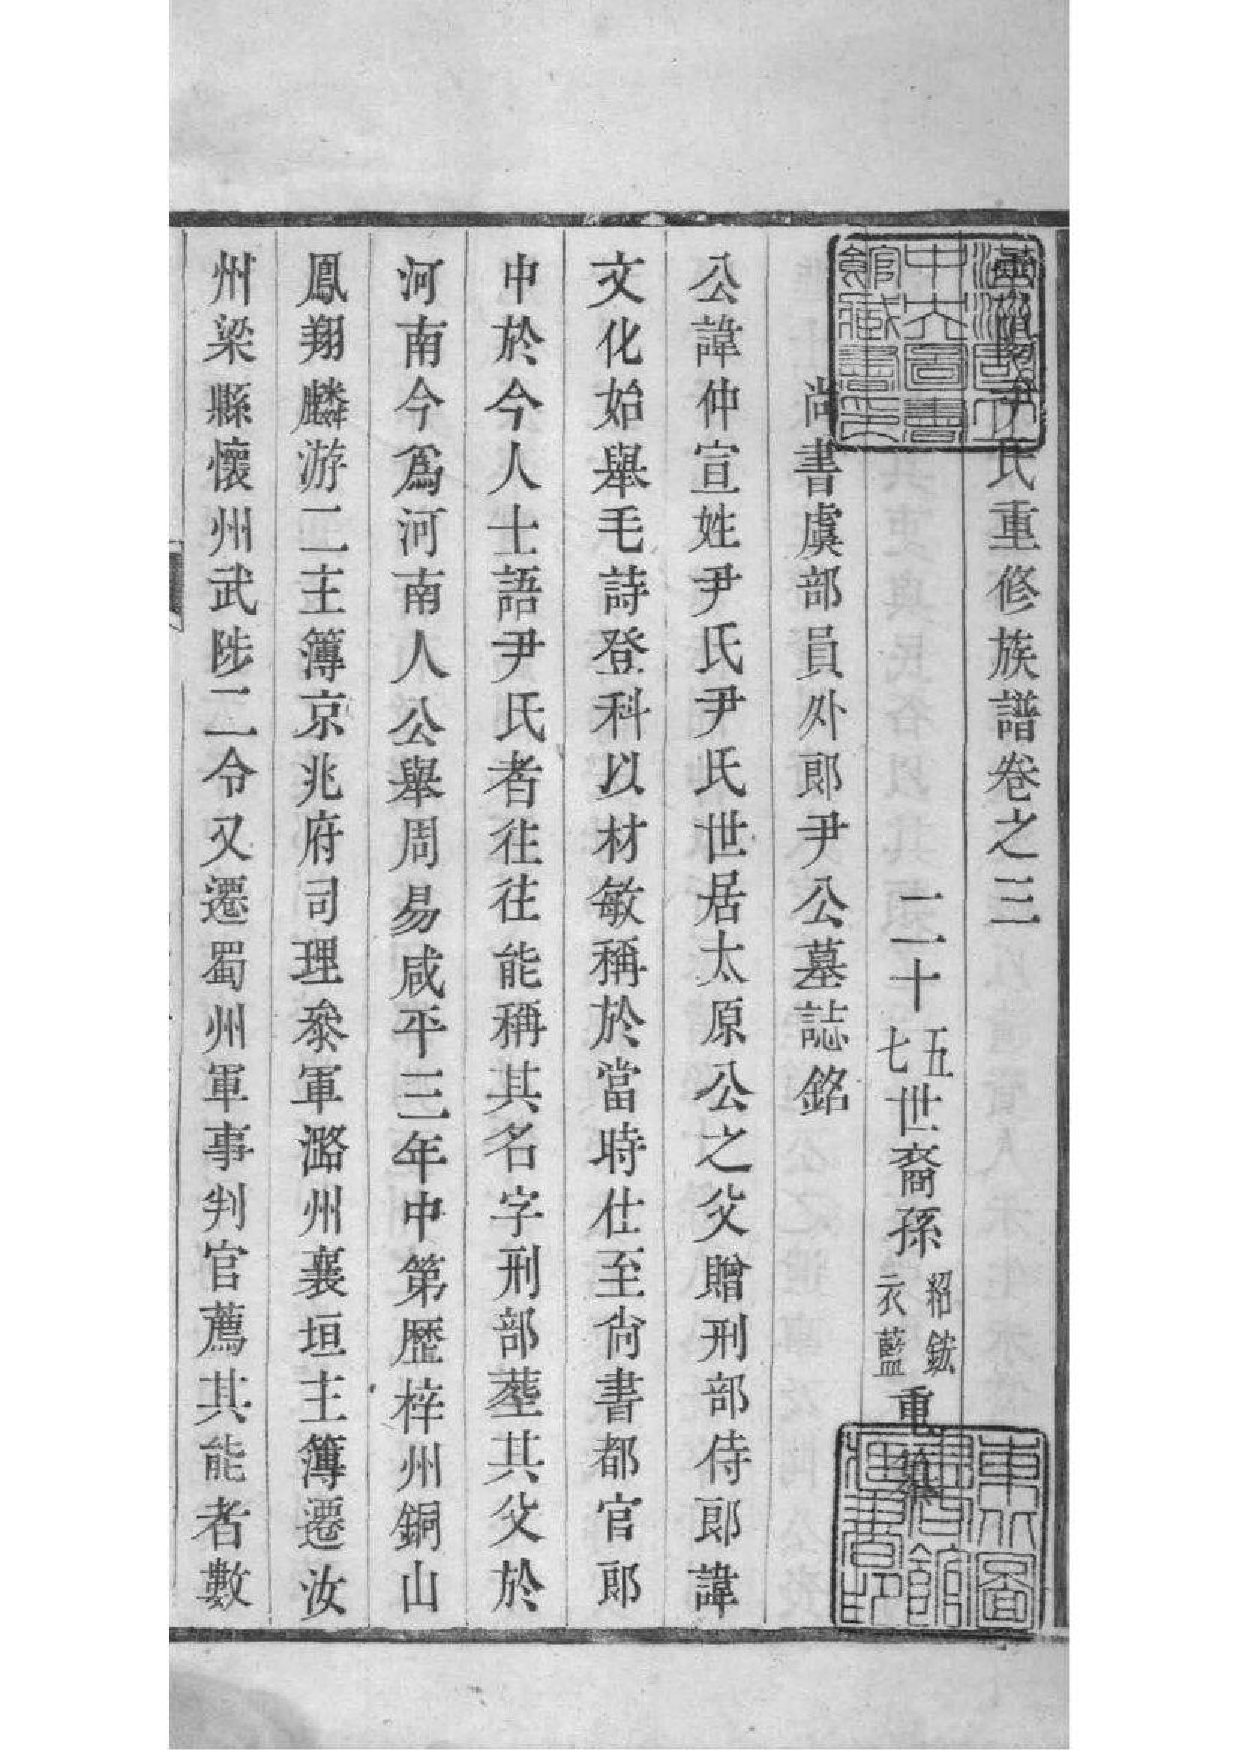 中央圖書
館藏書印
尹氏重修族譜卷之三
二十五七世裔孫紹鋐衣藍重
尚書虞部員外郎尹公墓誌銘
公諱仲宣姓尹氏尹氏世居太原公之父贈刑部侍郎諱
文化始舉毛詩登科以材敏稱於當時仕至尚書都官郎
中於今人士語尹氏者徃徃能稱其名字刑部塟其父於
河南今爲河南人公舉周易咸平三年中第歷梓州銅山
鳳翔麟游二主簿京兆府司理叅軍潞州襄垣主簿遷汝
州梁縣懷州武陟二令又遷蜀州軍事判官薦其能者數
東北圖